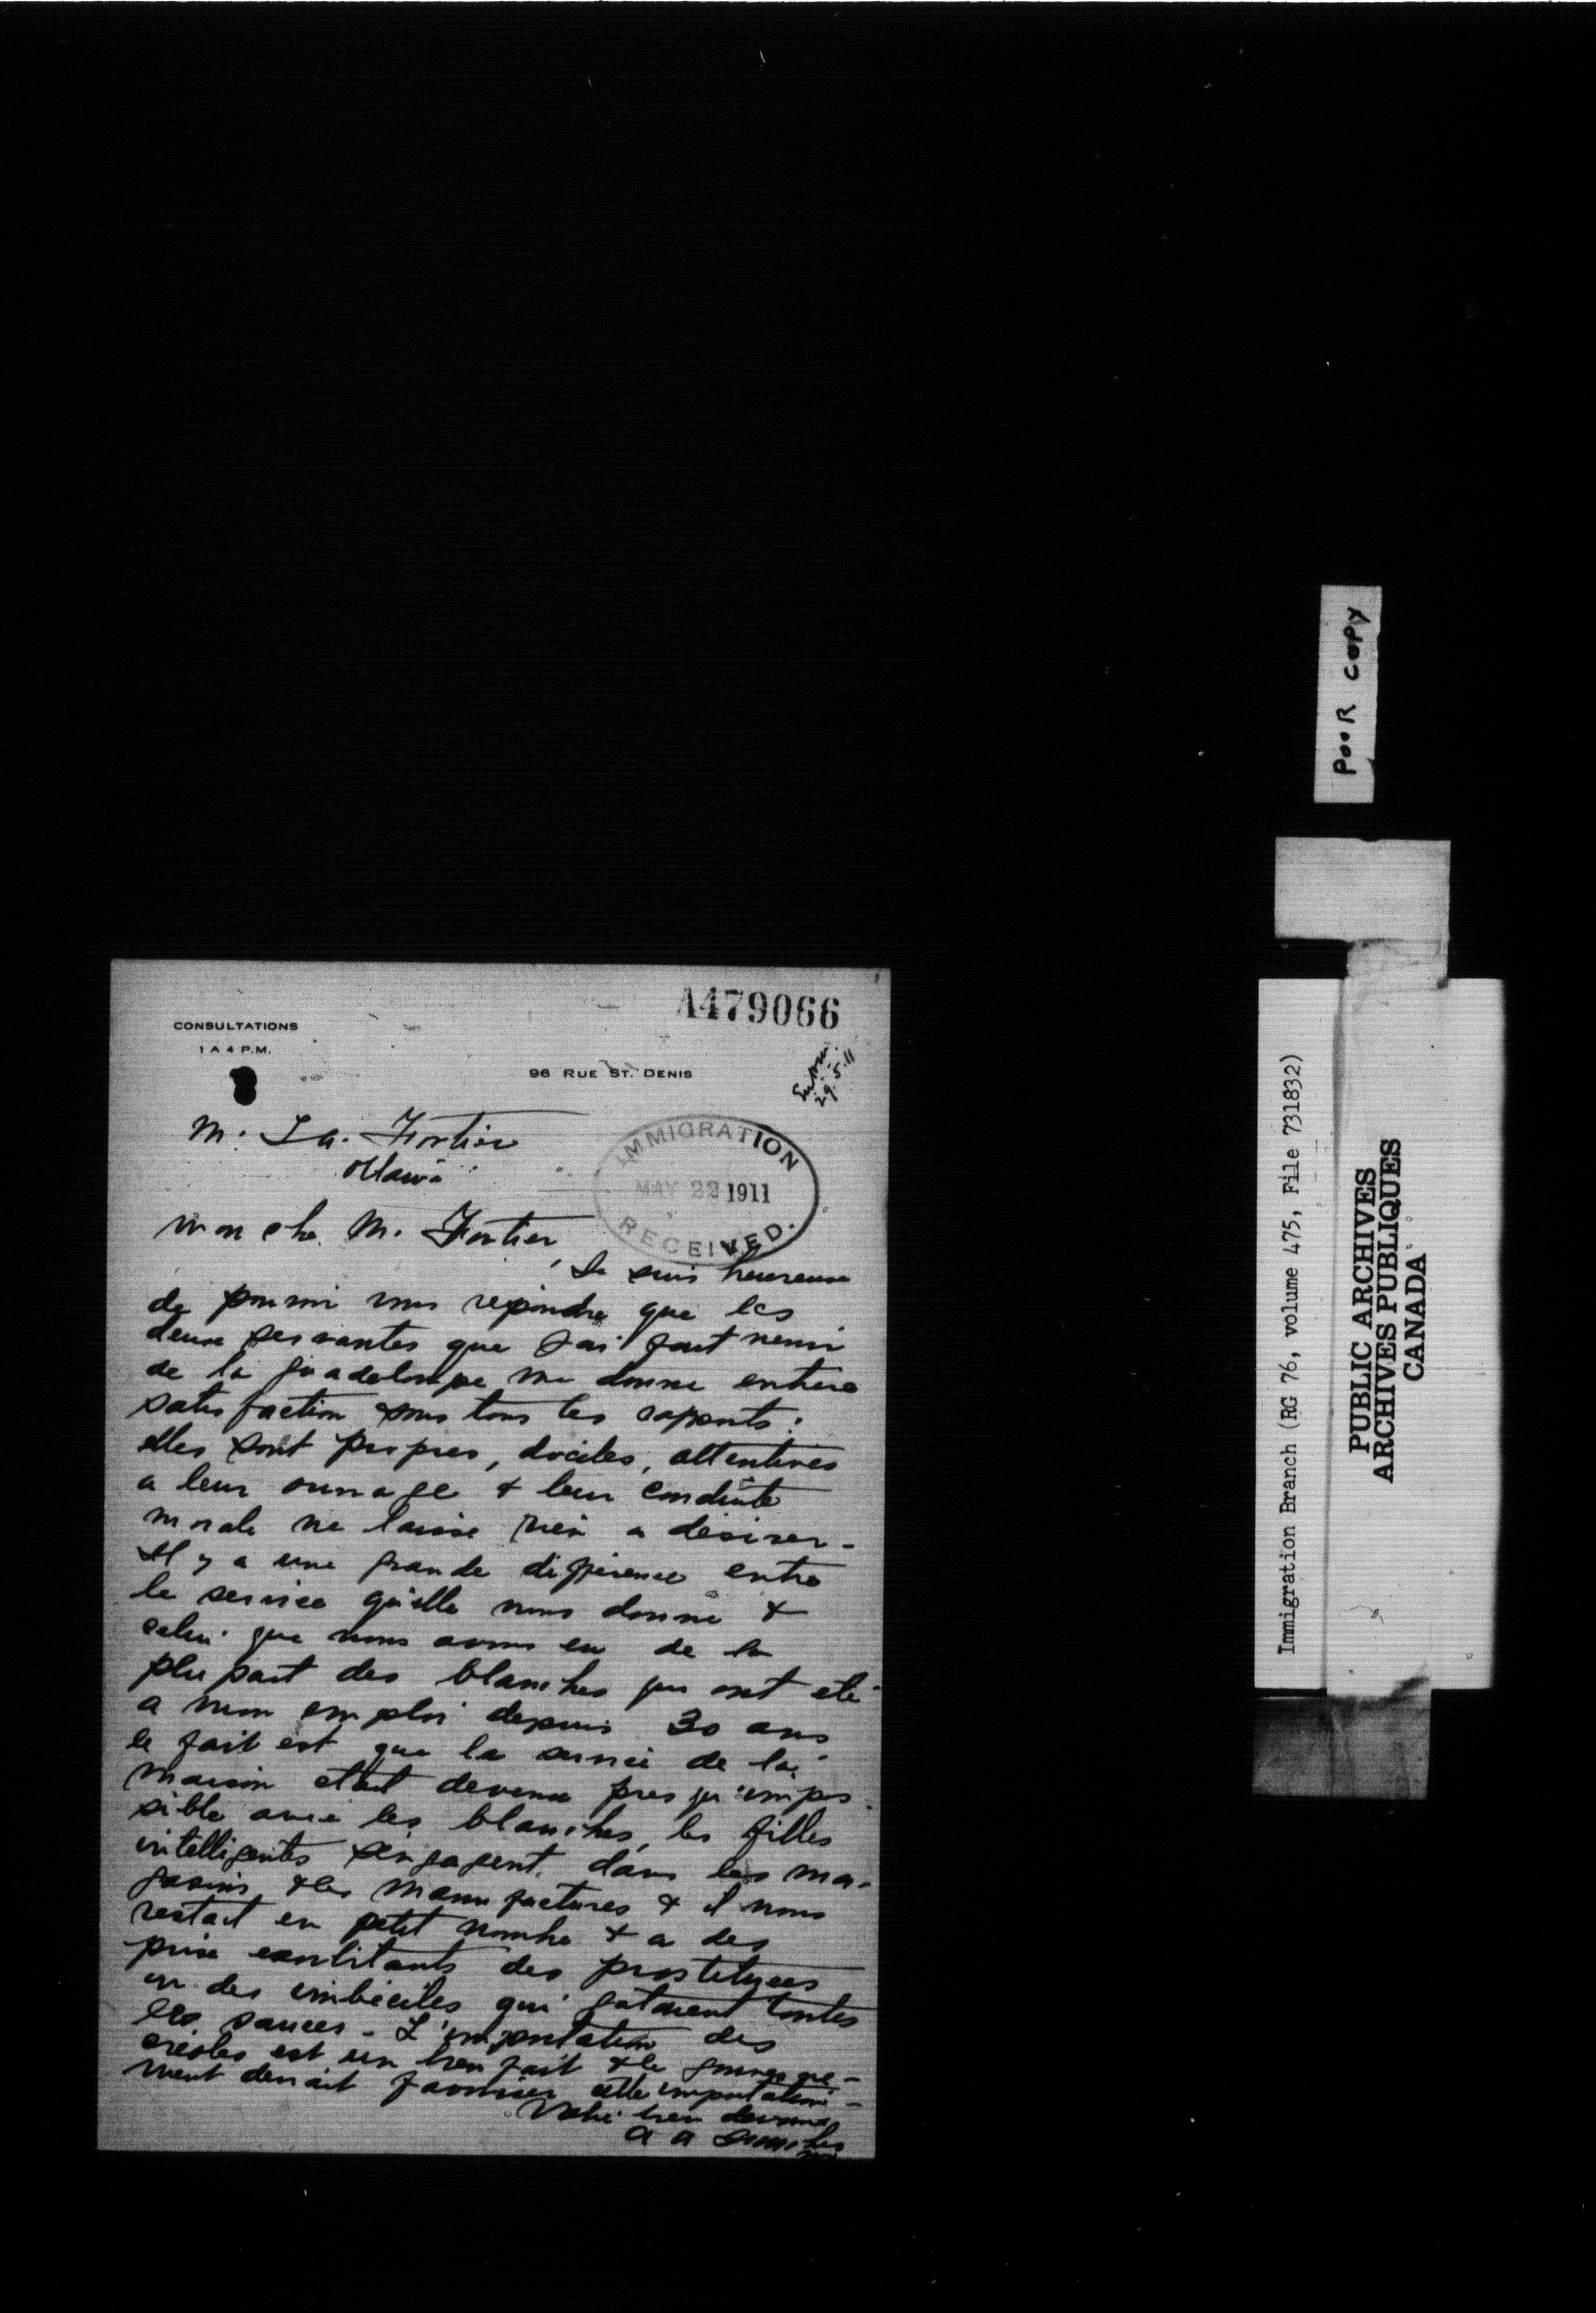 A479066
CONSULTATIONS
1 A 4 P.M.
96 RUE ST. DENIS
29.5.11
M. L a. Fortier
Ottawa
IMMIGRATION
MAY 22 1911
RECEIVED.
mon cher M. Fortier,
Je suis heureux
de pouvoir vous repondre que les
deux servantes que J'ai fait venir
de la guadeloupe me donne entiere
satisfaction sous tous les rapports :
elles sont propres, dociles, attentives
a leur ouvrage & leur conduite
morale ne laisse rien a desirer -
Il y a une grande difference entre
le service qu'elle nous donne &
celui que nous avons eu de la
plupart des blanches qui ont eté
a mon emploi depuis 30 ans
le fait est que le service de la
maison etait devenu presqu'impos
sible avec les blanches, les filles
intelligentes s'engagent dans les ma-
gasins & les manufactures & il nous
restait en petit nombre & a des
prix exorbitants des prostituées
ou des imbéciles qui gataient toutes
les sauces - L'importation des
créoles est un bienfait & le gouverne-
ment devrait favoriser cette importation -
Votre bien devoué
A A
POOR COPY
Immigration Branch (RG 76, volume 475, File 731832)
PUBLIC ARCHIVES
ARCHIVES PUBLIQUES
CANADA